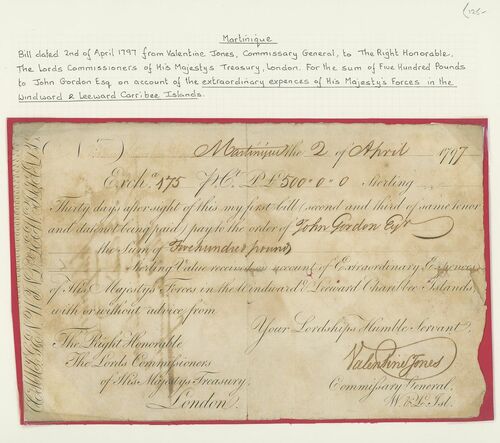 £125-
Martinique
Bill dated 2nd of April 1797 from Valentine Jones, Commissary General, to The Right Honorable,
The Lords Commissioners of His Majestys Treasury, London. For the sum of Five Hundred Pounds
to John Gordon Esq on account of the extraordinary expences of His Majesty's Forces in the
Windward & Leeward Carribee Islands.
Martinique the 2 of April 1797
Exch.ᵃ 175 P Cᵗ P £500=0=0 Sterling
Thirty days after sight of this my first bill (second and third of same tenor
and date not being paid) pay to the order of John Gordon Esqʳ
the Sum of Five hundred pounds
Sterling Value received on account of Extraordinary Expences
of His Majestys Forces in the Windward & Leeward Charibbee Islands,
with or without advice from
Your Lordships Humble Servant.
The Right Honorable
The Lords Commissioners
of His Majestys Treasury.
London.
Valentine Jones
Commissary General,
W. & L. Isl.